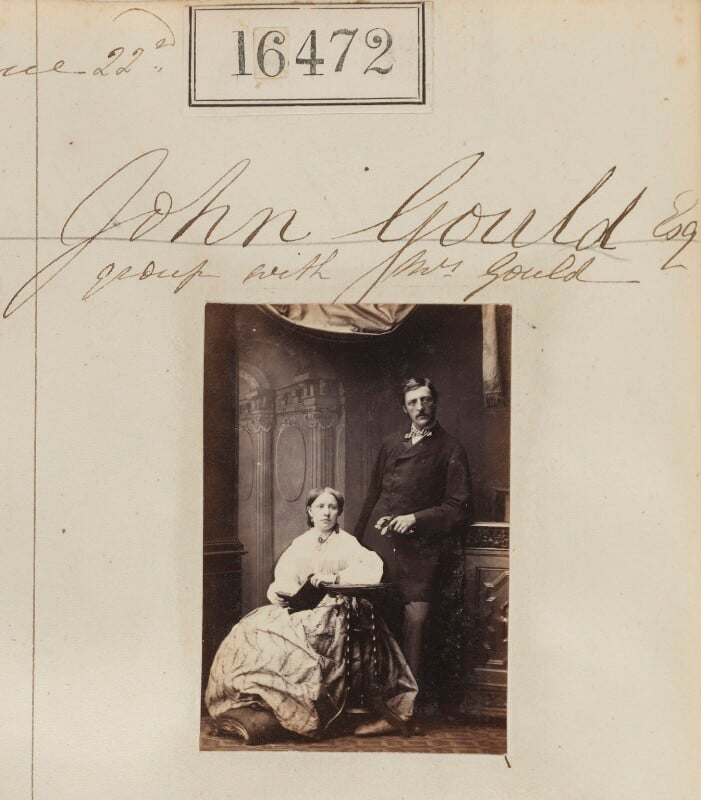 22ⁿᵈ
16472
John Gould Esq
group with Mrs Gould